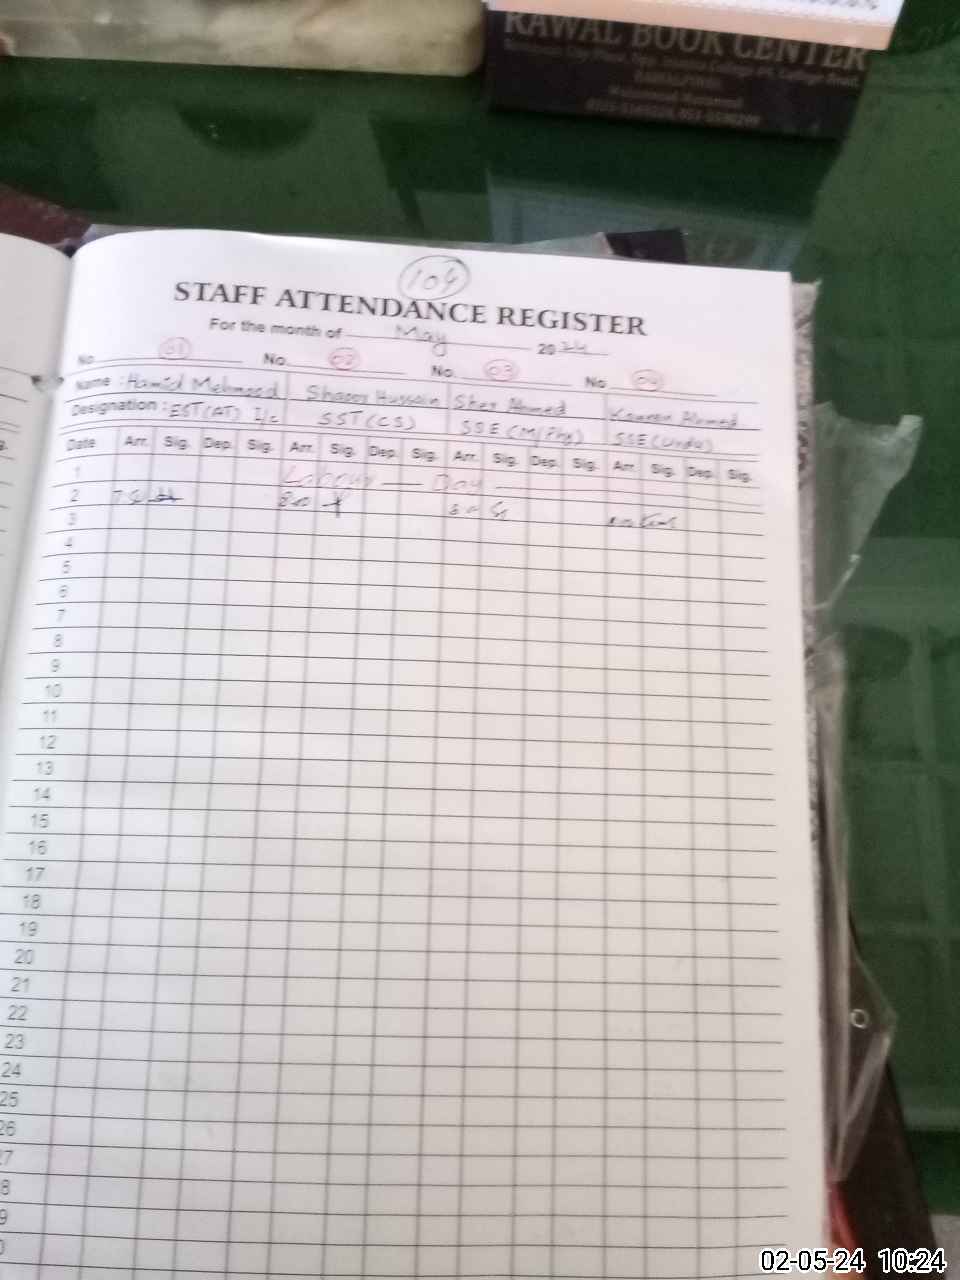 RAWAL BOOK CENTER
104
STAFF ATTENDANCE REGISTER
For the month of May 2024
No. 01 No. 02 No. 03 No. 04
Name : Hamid Mehmood Hussain Sher Ahmed Kamran Ahmed
Designation : EST(AT) I/c SST(CS) SSE(M/Phy) SSE(Urdu)
Date Arr. Sig. Dep. Sig. Arr. Sig. Dep. Sig. Arr. Sig. Dep. Sig. Arr. Sig. Dep. Sig.
1 Labour — Day —
2 8:00
3
4
5
6
7
8
9
10
11
12
13
14
15
16
17
18
19
20
21
22
23
24
25
26
7
8
9
0
02-05-24 10:24